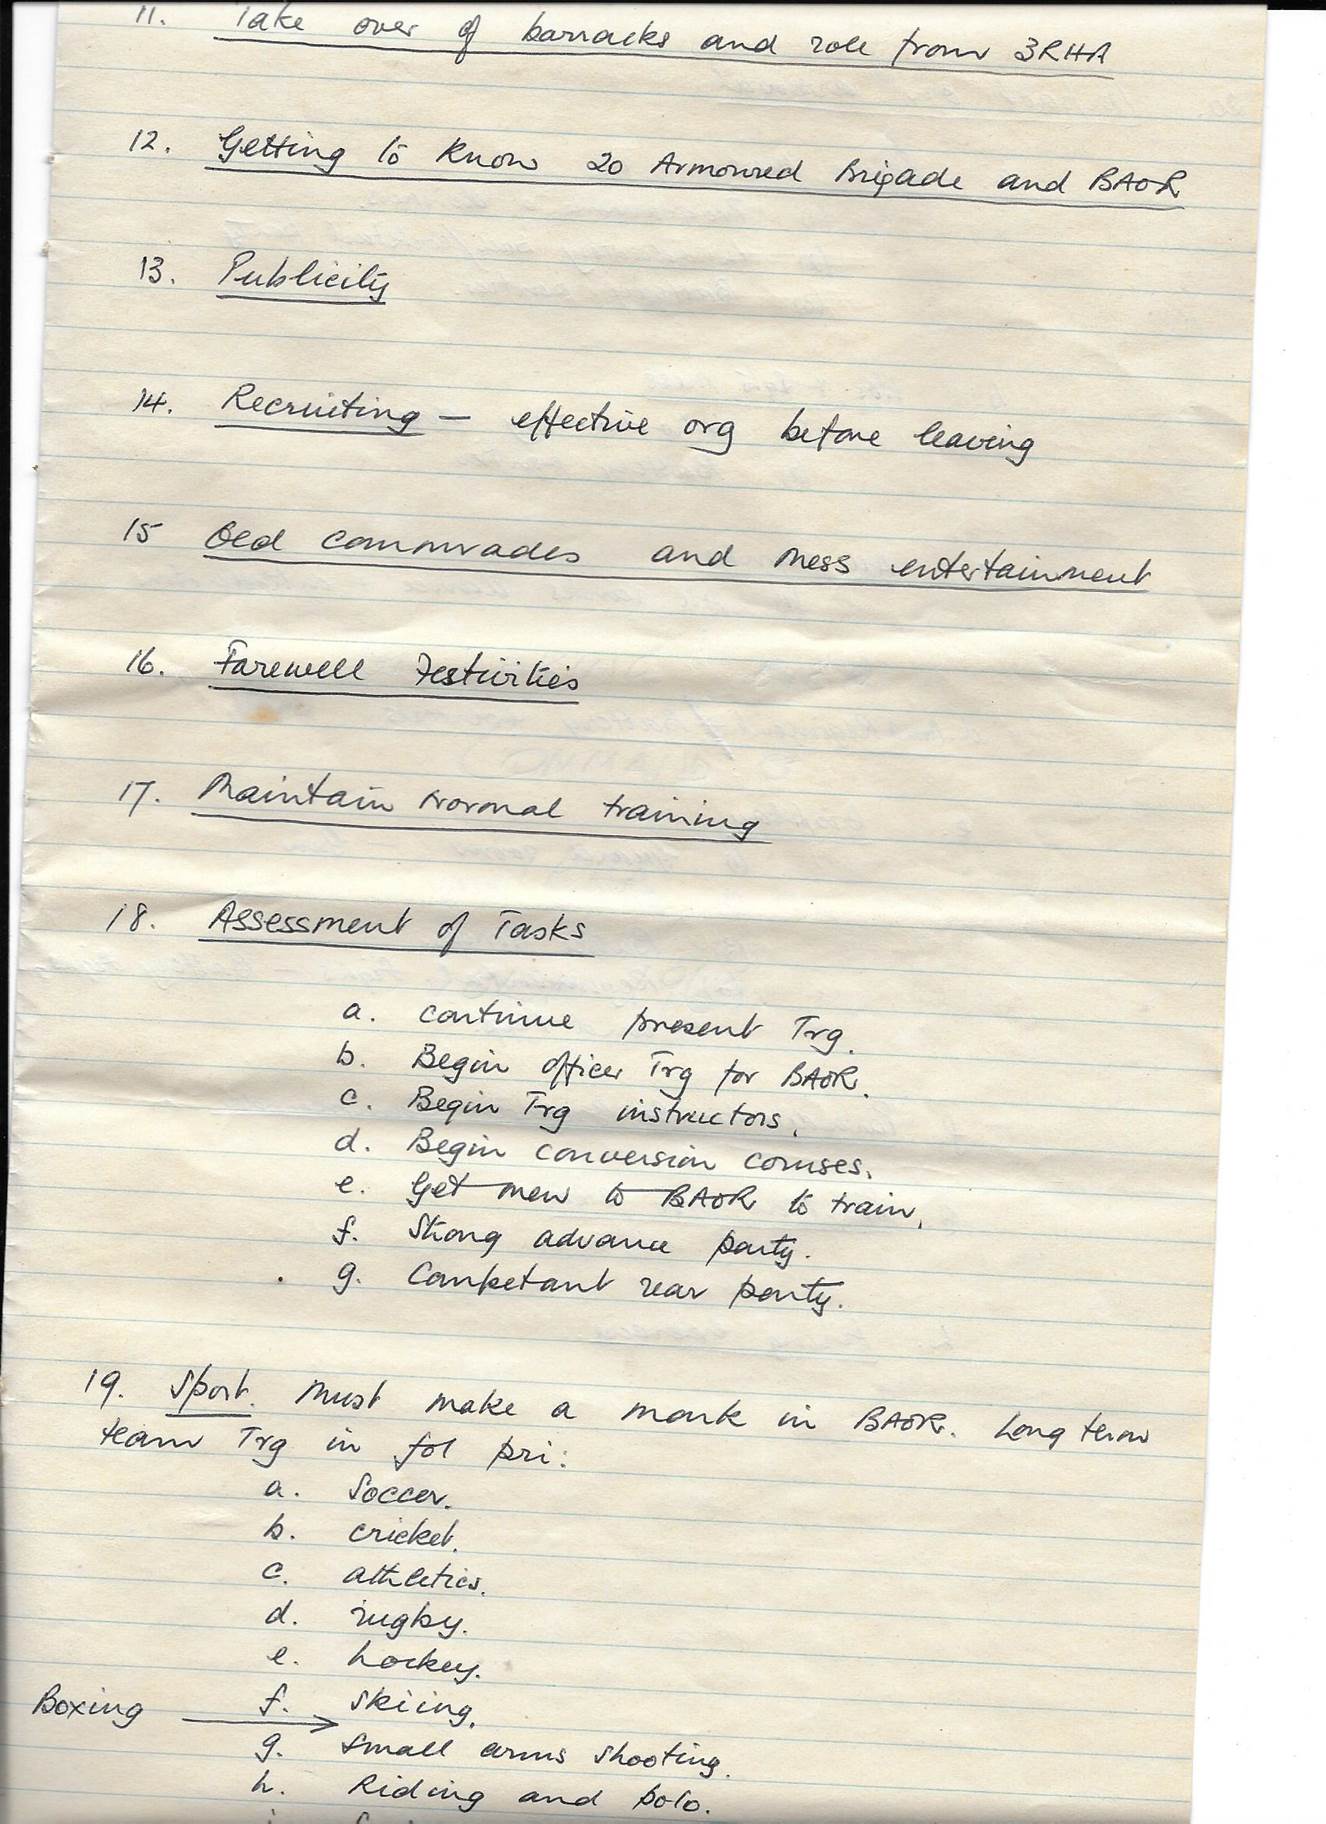 11. Take over of barracks and role from 3RHA
12. Getting to know 20 Armoured Brigade and BAOR
13. Publicity
14. Recruiting — effective org before leaving
15 Old commrades and Mess entertainment
16. Farewell Festivities
17. Maintain normal training
18. Assessment of Tasks
a. continue present Trg.
b. Begin officer Trg for BAOR.
c. Begin Trg instructors.
d. Begin conversion courses.
e. Get men to BAOR to train.
f. Strong advance party.
g. Competant rear party.
19. Sport. Must make a mark in BAOR. Long term
team Trg in fol pri:
a. Soccer.
b. cricket.
c. athletics.
d. rugby.
e. hockey.
f. skiing.
Boxing →
g. Small arms shooting.
h. Riding and polo.